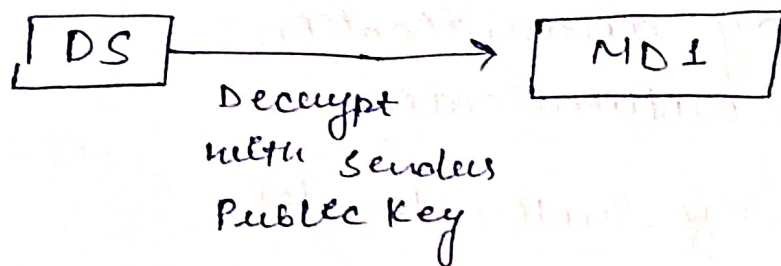 DS
MD1
Decrypt
with Senders
Public Key